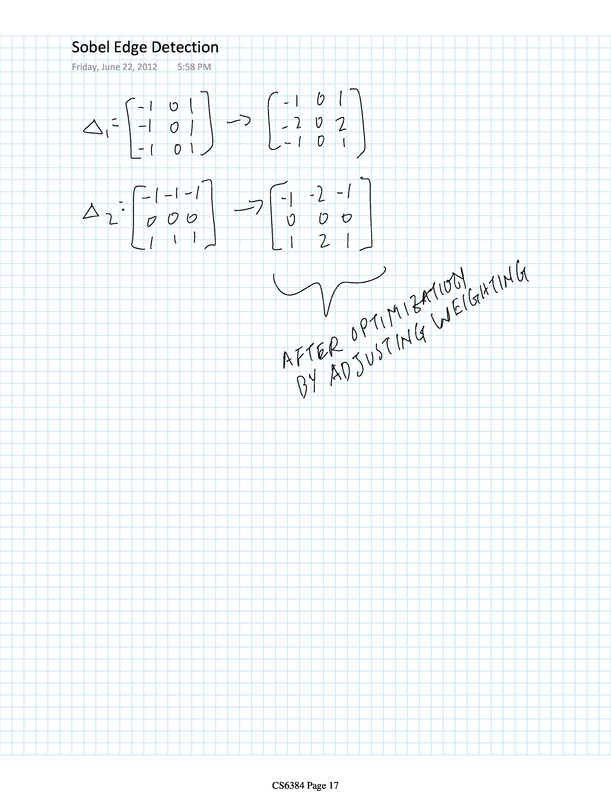 Sobel Edge Detection
Friday, June 22, 2012 5:58 PM
Δ₁= [-1 0 1 → [-1 0 1
-1 0 1 -2 0 2
-1 0 1] -1 0 1]
Δ₂: [-1 -1 -1 → [-1 -2 -1
0 0 0 0 0 0
1 1 1] 1 2 1]
AFTER OPTIMIZATION
BY ADJUSTING WEIGHTING
CS6384 Page 17